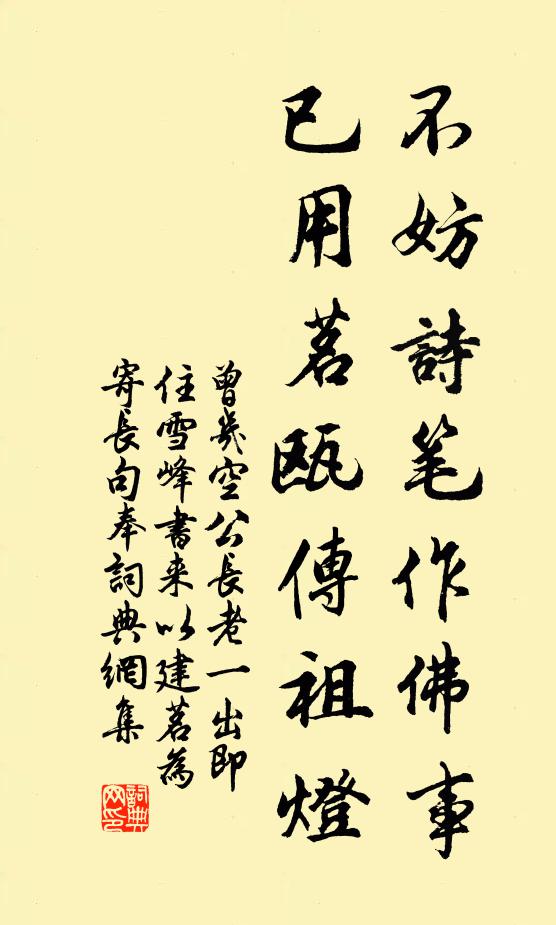 不妨詩笔作佛事
已用茗瓯傳祖燈
曾幾空公長老一出即
住雪峰書来以建茗為
寄長句奉詞典網集
詞典网印